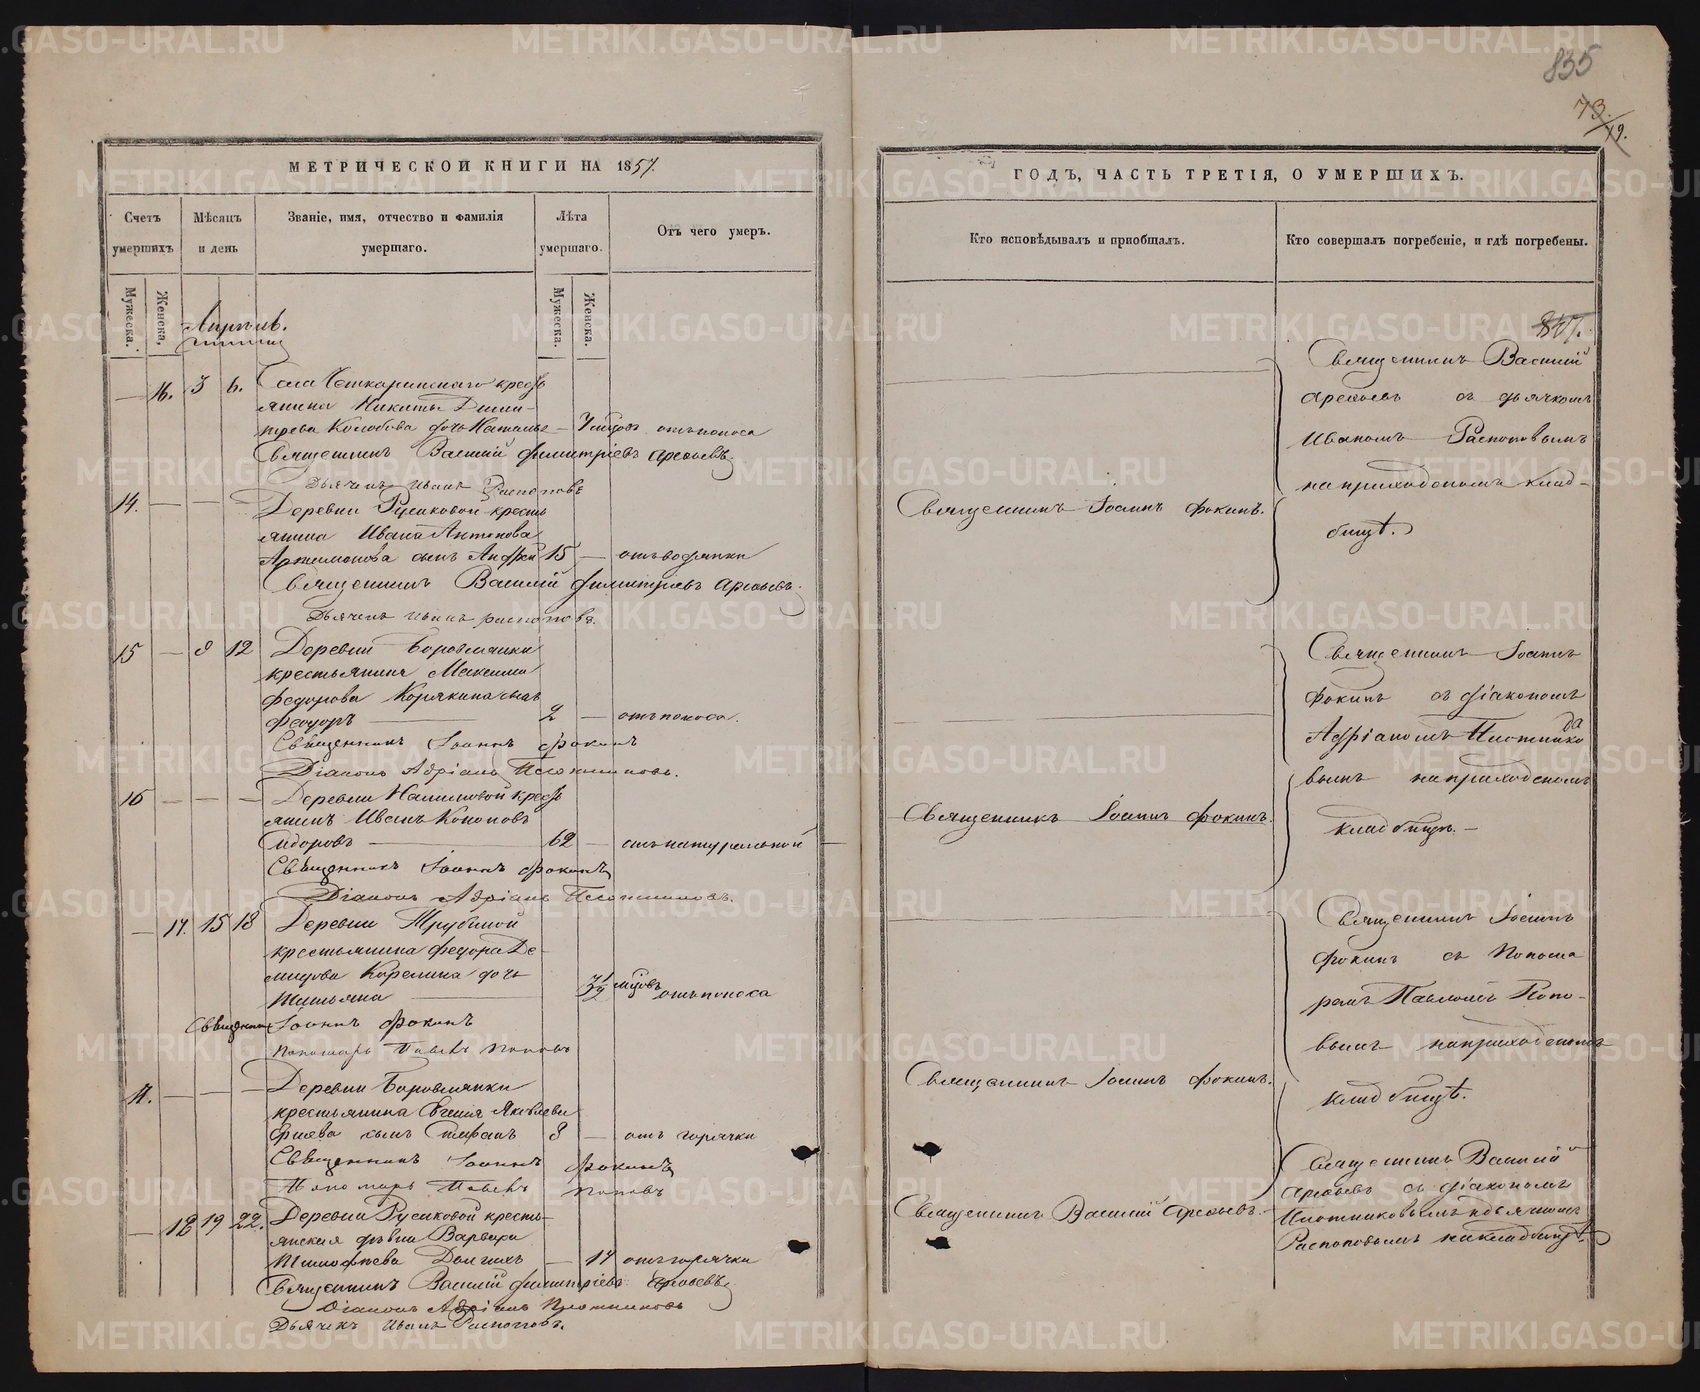 835
73.
19.
МЕТРИЧЕСКОЙ КНИГИ НА 1857.
Счетъ умершихъ
Мѣсяцъ и день
Званіе, имя, отчество и фамилія умершаго.
Лѣта умершаго.
Отъ чего умеръ.
Мужеска.
Женска.
Мужеска.
Женска.
Апрѣль.
16. 3 6. Села Четкаринскаго кресть
янина Никиты Дими-
трева Колобова дочь Наталья отъ поноса
Священникъ Василій Димитріевъ Арефьевъ
Дьячекъ Иванъ Распоповъ
14. Деревни Русаковой кресть
янина Ивана Антонова
Артамонова сынъ Андрей 15 — отъ водянки
Священникъ Василій Димитріевъ Арефьевъ.
Дьячекъ Иванъ Распоповъ.
15 — 8 12 Деревни Боровлянки
крестьянина Максима
Федорова Корякина сынъ
Феодоръ 2 — отъ поноса.
Священникъ Іоаннъ Фокинъ
Діаконъ Адріанъ Плотниковъ.
16 — — — Деревни Налимовой кресть
янинъ Иванъ Кононовъ
Сидоровъ 62 — отъ натуральной
Священникъ Іоаннъ Фокинъ
Діаконъ Адріанъ Плотниковъ.
— 17. 15 18 Деревни Трубиной
крестьянина Федора Де-
мидова Карелина дочь
Татьяна 3½ мѣсцовъ отъ поноса
Священникъ Іоаннъ Фокинъ
Пономарь Павелъ Поповъ
Деревни Боровлянки
крестьянина Яковлева
сынъ Стефанъ 3 — отъ горячки
Священникъ Іоаннъ Фокинъ
Пономарь Павелъ Поповъ
— 18 19 22. Деревни Русаковой кресть-
янская дѣвица Варвара
Тимофеева Долгихъ — 17 отъ горячки
Священникъ Василій Димитріевъ Арефьевъ
Діаконъ Адріанъ Плотниковъ
Дьячекъ Иванъ Распоповъ.
ГОДЪ, ЧАСТЬ ТРЕТІЯ, О УМЕРШИХЪ.
Кто исповѣдывалъ и пріобщалъ.
Кто совершалъ погребеніе, и гдѣ погребены.
Священникъ Іоаннъ Фокинъ.
Священникъ Іоаннъ Фокинъ.
Священникъ Іоаннъ Фокинъ.
Священникъ Василій Арефьевъ.
Священникъ Василій
Арефьевъ съ дьячкомъ
Иваномъ Распоповымъ
на приходскомъ клад-
бищѣ.
Священникъ Іоаннъ
Фокинъ съ діакономъ
Адріаномъ Плотнико
вымъ на приходскомъ
кладбищѣ.
Священникъ Іоаннъ
Фокинъ съ Понома
ремъ Павломъ Попо-
вымъ на приходскомъ
кладбищѣ.
Священникъ Василій
Арефьевъ съ діакономъ
Плотниковымъ и дьячкомъ
Распоповымъ на кладбищѣ.
METRIKI.GASO-URAL.RU